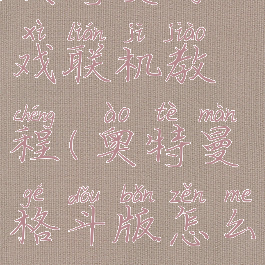 xì lián jī jiào
戏联机教
chéng ào tè màn
程(奥特曼
gé dòu bǎn zěn me
格斗版怎么